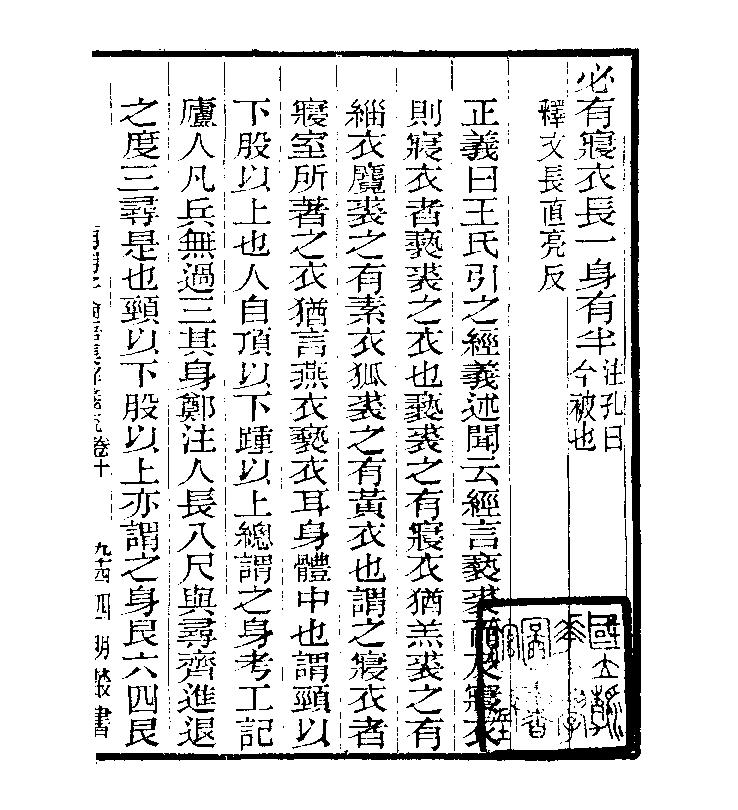 必有寢衣長一身有半注孔曰
今被也
釋文長直亮反
正義曰王氏引之經義述聞云經言褻裘而及寢衣
則寢衣者褻裘之衣也褻裘之有寢衣猶羔裘之有
緇衣麑裘之有素衣狐裘之有黃衣也謂之寢衣者
寢室所著之衣猶言燕衣褻衣耳身體中也謂頸以
下股以上也人自頂以下踵以上總謂之身考工記
廬人凡兵無過三其身鄭注人長八尺與尋齊進退
之度三尋是也頸以下股以上亦謂之身艮六四艮
卷十
四明叢書